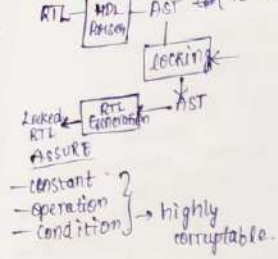 RTL HDL Parser AST
Locking
AST
RTL Generation
Locked RTL
ASSURE
- constant
- operation
- condition
→ highly corruptable.